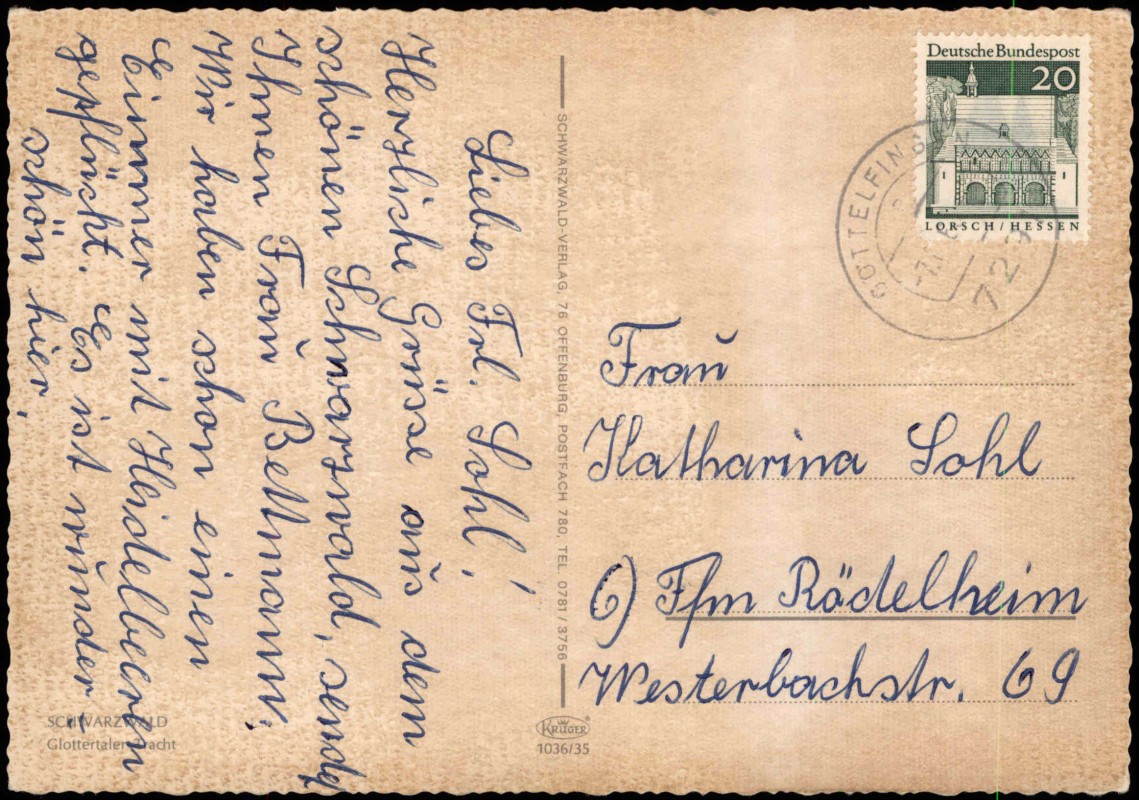 Liebes Frl. Sohl!
Herzliche Grüsse aus dem
schönen Schwarzwald, sendet
Ihnen Frau Bellmann.
Wir haben schon einen
Eimmer mit Heidelberen
gepflückt. Es ist wunder-
schön hier.
SCHWARZWALD
Glottertaler Tracht
SCHWARZWALD-VERLAG, 76 OFFENBURG, POSTFACH 780, TEL. 0781/3756
KRÜGER
1036/35
Deutsche Bundespost
20
LORSCH/HESSEN
Frau
Katharina Sohl
6) Ffm Rödelheim
Westerbachstr. 69